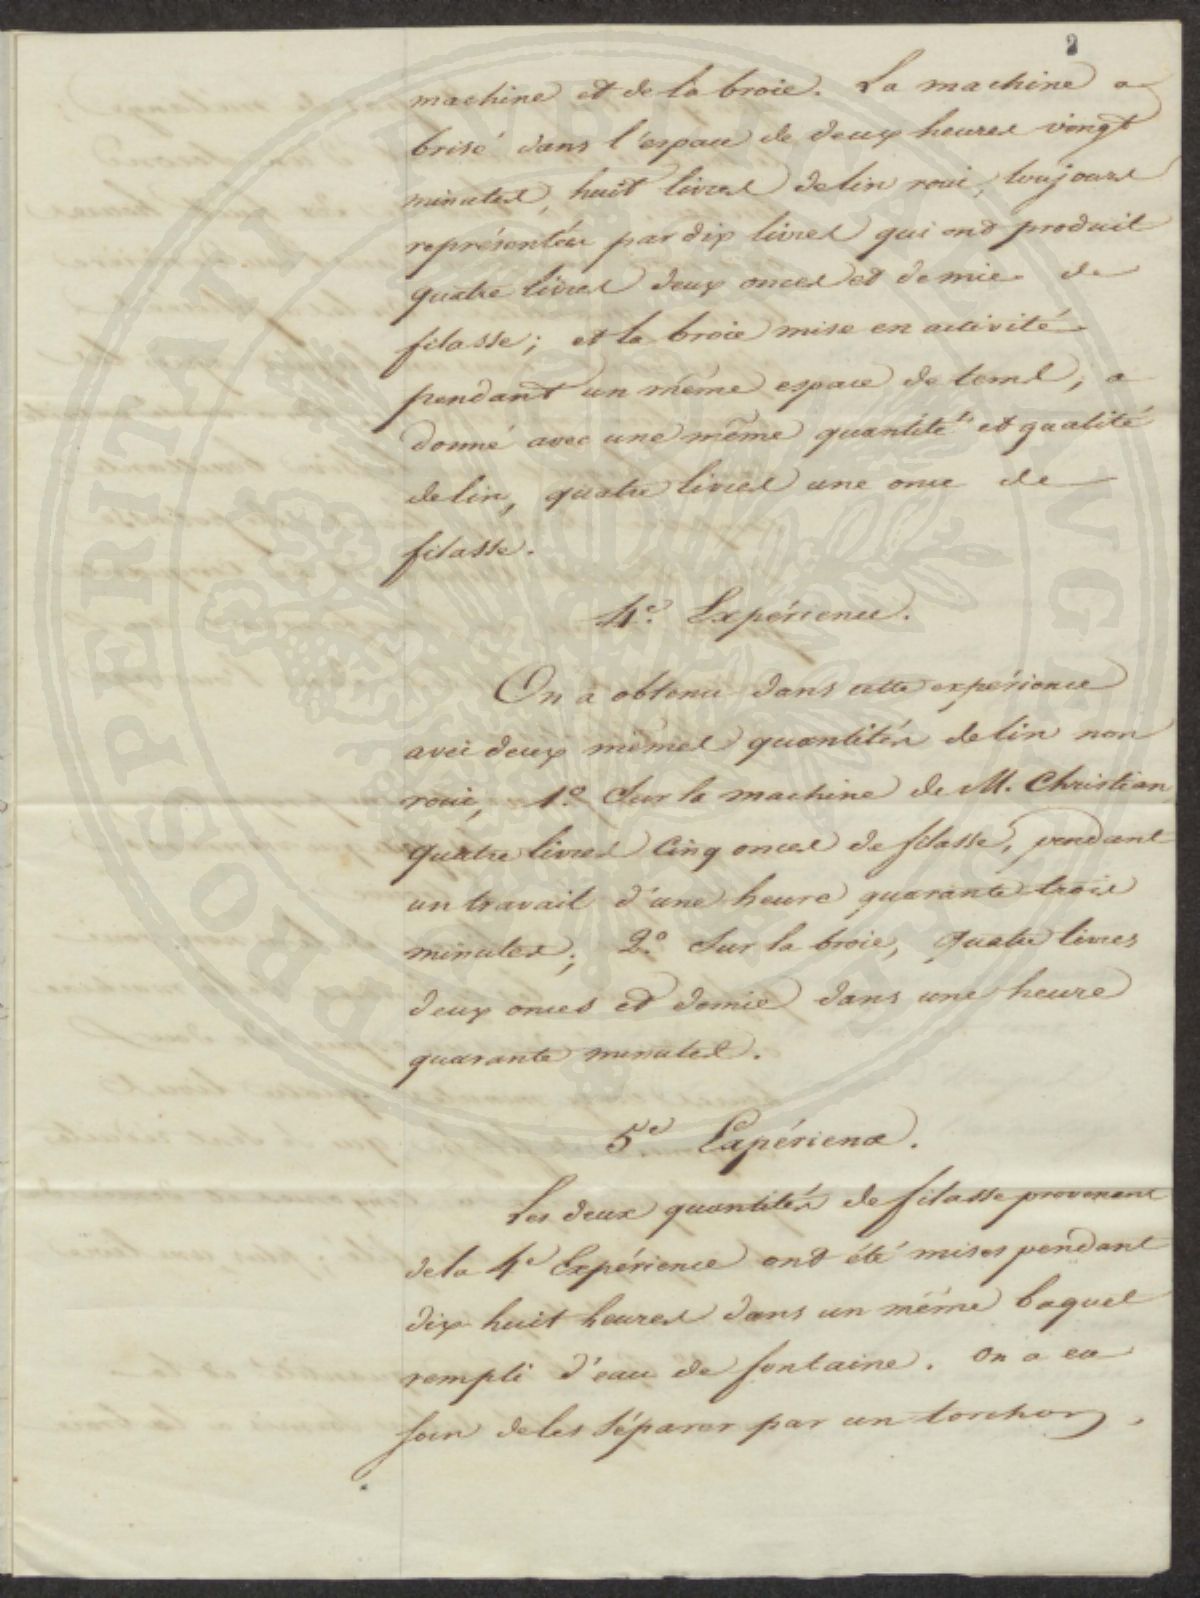 2
machine et de la broie. La machine a
brisé dans l'espace de deux heures vingt
minutes, huit livres de lin roui, toujours
représentées par dix livres qui ont produit
quatre livres deux onces et demie de
filasse; et la broie mise en activité
pendant un même espace de tems, a
donné avec une même quantité et qualité
de lin, quatre livres une once de
filasse.
4e. Expérience.
On a obtenu dans cette expérience
avec deux mêmes quantités de lin non
roui, 1o. Sur la machine de M. Christian
quatre livres cinq onces de filasse, pendant
un travail d'une heure quarante trois
minutes; 2o. Sur la broie, quatre livres
deux onces et demie dans une heure
quarante minutes.
5e. Expérience.
Les deux quantités de filasse provenant
de la 4e Expérience ont été mises pendant
dix huit heures dans un même baquet
rempli d'eau de fontaine. On a eu
soin de les séparer par un torchon,
PROSPERITATI PUBLICAE AUGENDAE